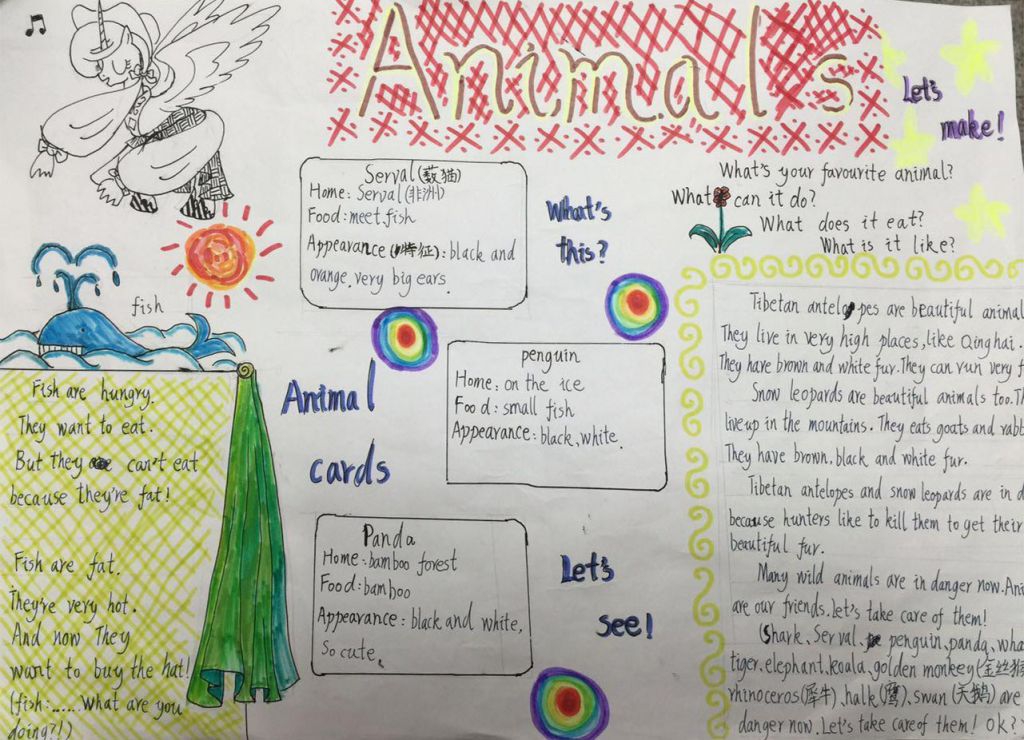 Animals
Let's
make!
Serval(薮猫)
Home: Serval(非洲)
Food: meet, fish
Appearance(特征): black and
orange, very big ears.
What's
this?
What's your favourite animal?
What can it do?
What does it eat?
What is it like?
fish
Fish are hungry.
They want to eat.
But They can't eat
because They're fat!
Fish are fat.
They're very hot.
And now They
want to buy the hat!
(fish:......What are you
doing?!)
Animal
cards
penguin
Home: on the ice
Food: small fish
Appearance: black, white.
Panda
Home: bamboo forest
Food: bamboo
Appearance: black and white,
So cute.
Let's
see!
Tibetan antelopes are beautiful animal
They live in very high places, like Qinghai.
They have brown and white fur. They can run very f
Snow leopards are beautiful animals too. Th
live up in the mountains. They eats goats and rabb
They have brown, black and white fur.
Tibetan antelopes and snow leopards are in d
because hunters like to kill them to get their
beautiful fur.
Many wild animals are in danger now. Ani
are our friends. Let's take care of them!
(Shark, Serval, penguin, panda, wha
tiger, elephant, koala, golden monkey(金丝猴
rhinoceros(犀牛), halk(鹰), swan(天鹅) are
danger now. Let's take care of them! OK?